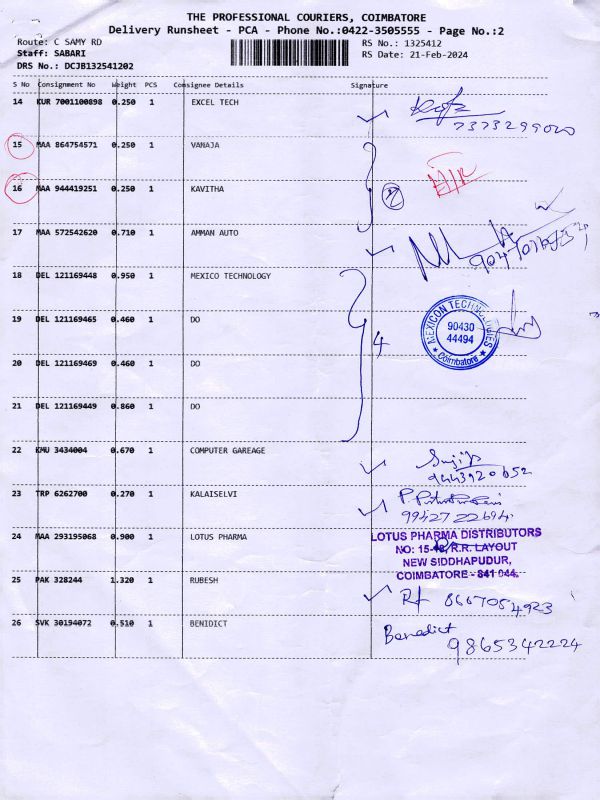 THE PROFESSIONAL COURIERS, COIMBATORE
Delivery Runsheet - PCA - Phone No.:0422-3505555 - Page No.:2
Route: C SAMY RD
Staff: SABARI
DRS No.: DCJB132541202
RS No.: 1325412
RS Date: 21-Feb-2024
S No Consignment No Weight PCS Consignee Details Signature
14 KUR 7001100898 0.250 1 EXCEL TECH
7373299020
15 MAA 864754571 0.250 1 VANAJA
16 MAA 944419251 0.250 1 KAVITHA
2
17 MAA 572542620 0.710 1 AMMAN AUTO
18 DEL 121169448 0.950 1 MEXICO TECHNOLOGY
19 DEL 121169465 0.460 1 DO
4
MEXICON TECHNOLOGIES
90430
44494
* Coimbatore *
20 DEL 121169469 0.460 1 DO
21 DEL 121169449 0.860 1 DO
22 KMU 3434004 0.670 1 COMPUTER GAREAGE
9443920652
23 TRP 6262700 0.270 1 KALAISELVI
9942722694
24 MAA 293195068 0.900 1 LOTUS PHARMA
LOTUS PHARMA DISTRIBUTORS
R.R. LAYOUT
NEW SIDDHAPUDUR,
COIMBATORE - 641 044.
25 PAK 328244 1.320 1 RUBESH
8667054923
26 SVK 30194072 0.510 1 BENIDICT
Benedict
9865342224